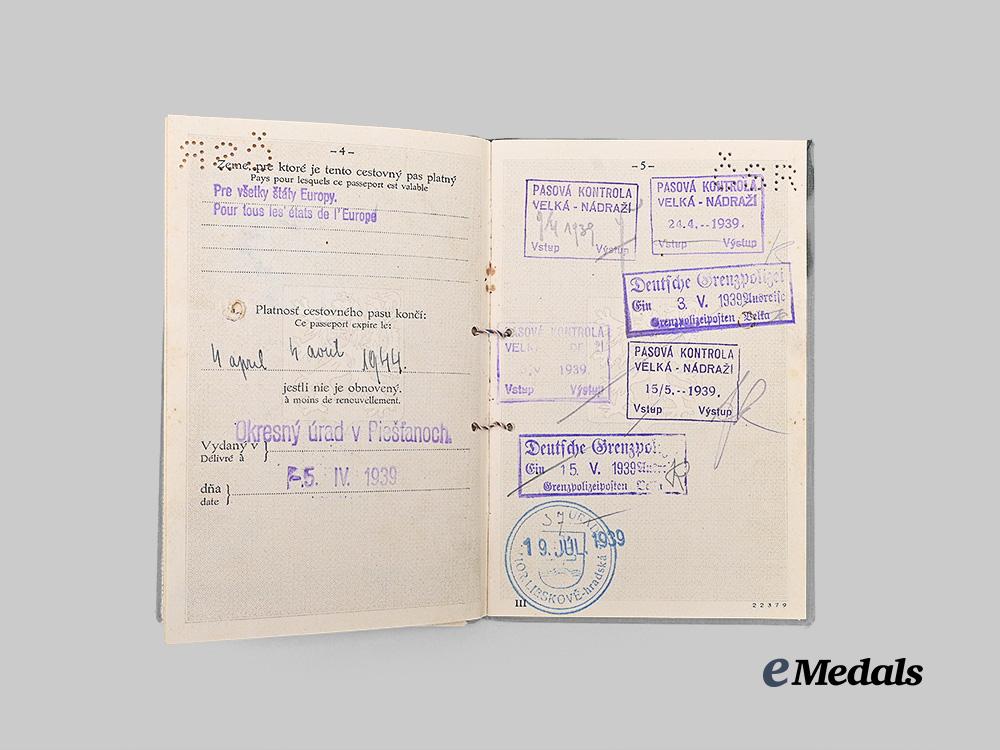 -4-
Zeme, pre ktoré je tento cestovný pas platný
Pays pour lesquels ce passeport est valable
Pre všetky štáty Europy.
Pour tous les états de l'Europe
Platnosť cestovného pasu končí:
Ce passeport expire le:
4 april 4 aout 1944.
jestli nie je obnovený.
à moins de renouvellement.
Okresný úrad v Piešťanoch.
Vydaný v
Délivré à
-5. IV. 1939
dňa
date
-5-
PASOVÁ KONTROLA
VELKÁ - NÁDRAŽI
1939
Vstup Výstup
PASOVÁ KONTROLA
VELKÁ - NÁDRAŽI
24.4.--1939.
Vstup Výstup
Deutsche Grenzpolizei
Ein 3. V. 1939 Ausreise
Grenzpolizeiposten Velka
PASOVÁ KONTROLA
1939.
Vstup Výstup
PASOVÁ KONTROLA
VELKÁ - NÁDRAŽI
15/5.--1939.
Vstup Výstup
Deutsche Grenzpol
Ein 15. V. 1939
Grenzpolizeiposten Velka
19. JÚL. 1939
hradská
III
22379
eMedals